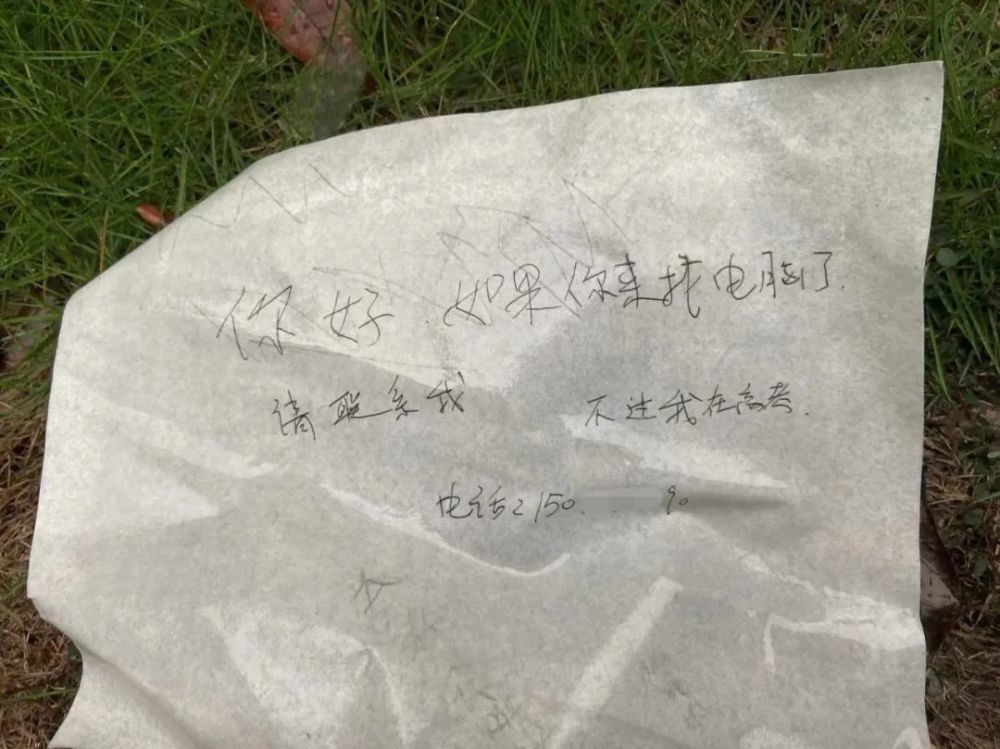 你好.如果你来找电脑了.
请联系我 不过我在高考.
电话:150. 90